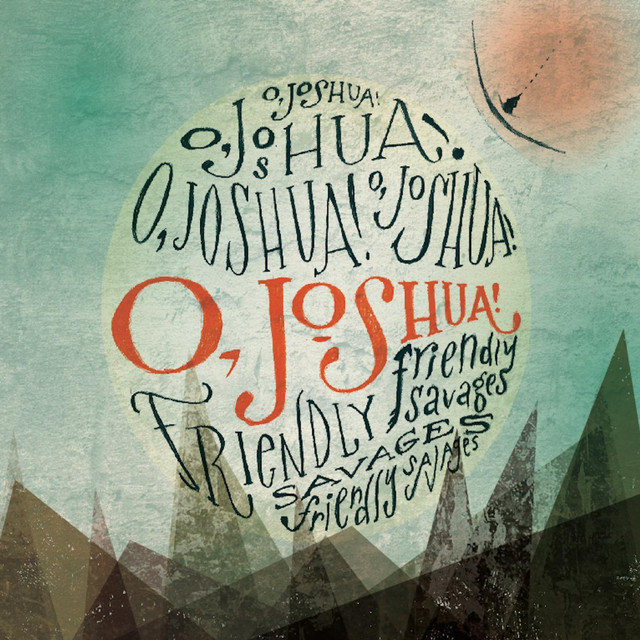 O, JOSHUA!
O, JOSHUA!
O, JOSHUA! O, JOSHUA!
O, JOSHUA!
friendly
savages
FRIENDLY
SAVAGES
friendly savages